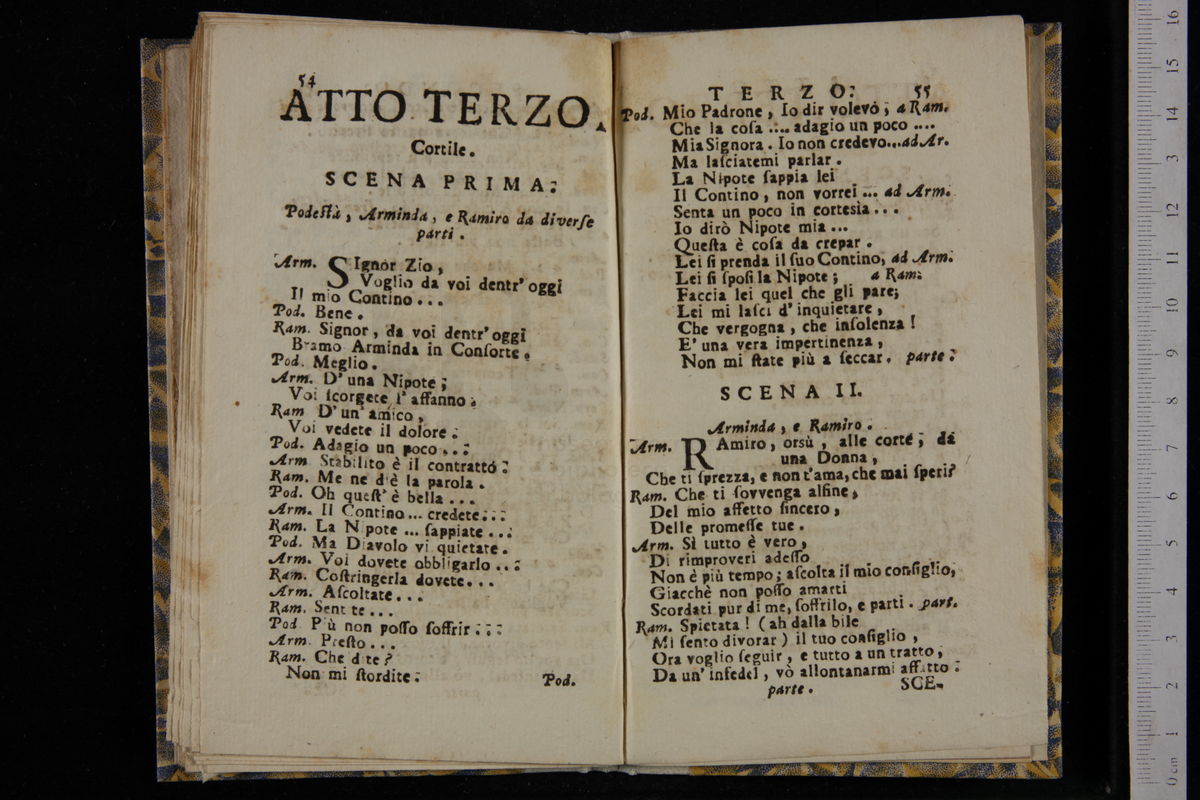 54
ATTO TERZO.
Cortile.
SCENA PRIMA.
Podestà, Arminda, e Ramiro da diverse
parti.
Arm. SIgnor Zio,
Voglio da voi dentr' oggi
Il mio Contino...
Pod. Bene.
Ram. Signor, da voi dentr' oggi
Bramo Arminda in Conſorte.
Pod. Meglio.
Arm. D' una Nipote;
Voi ſcorgete l' affanno.
Ram D' un' amico,
Voi vedete il dolore.
Pod. Adagio un poco...
Arm Stabilito è il contratto:
Ram. Me ne diè la parola.
Pod. Oh queſt' è bella...
Arm. Il Contino... credete...
Ram. La Nipote... ſappiate...
Pod. Ma Diavolo vi quietate.
Arm. Voi dovete obbligarlo...
Ram. Coſtringerla dovete...
Arm. Aſcoltate...
Ram. Sentite...
Pod. Più non poſſo ſoffrir...
Arm. Preſto...
Ram. Che dite?
Non mi ſtordite.
Pod.
TERZO. 55
Pod. Mio Padrone, Io dir volevo; a Ram.
Che la coſa .... adagio un poco ....
Mia Signora. Io non credevo... ad Ar.
Ma laſciatemi parlar.
La Nipote ſappia lei
Il Contino, non vorrei... ad Arm.
Senta un poco in cortesia...
Io dirò Nipote mia...
Queſta è coſa da crepar.
Lei ſi prenda il ſuo Contino, ad Arm.
Lei ſi ſpoſi la Nipote; a Ram.
Faccia lei quel che gli pare;
Lei mi laſci d' inquietare,
Che vergogna, che inſolenza!
E' una vera impertinenza,
Non mi ſtate più a ſeccar. parte.
SCENA II.
Arminda, e Ramiro.
Arm. RAmiro, orsù, alle corte; da
una Donna,
Che ti ſprezza, e non t'ama, che mai ſperi?
Ram. Che ti ſovvenga alfine,
Del mio affetto ſincero,
Delle promeſſe tue.
Arm. Sì tutto è vero,
Di rimproveri adeſſo
Non è più tempo; aſcolta il mio conſiglio,
Giacchè non poſſo amarti
Scordati pur di me, ſoffrilo, e parti. part.
Ram. Spietata! (ah dalla bile
Mi ſento divorar) il tuo conſiglio,
Ora voglio ſeguir, e tutto a un tratto,
Da un' infedel, vò allontanarmi affatto.
parte. SCE-
0 cm 1 2 3 4 5 6 7 8 9 10 11 12 13 14 15 16